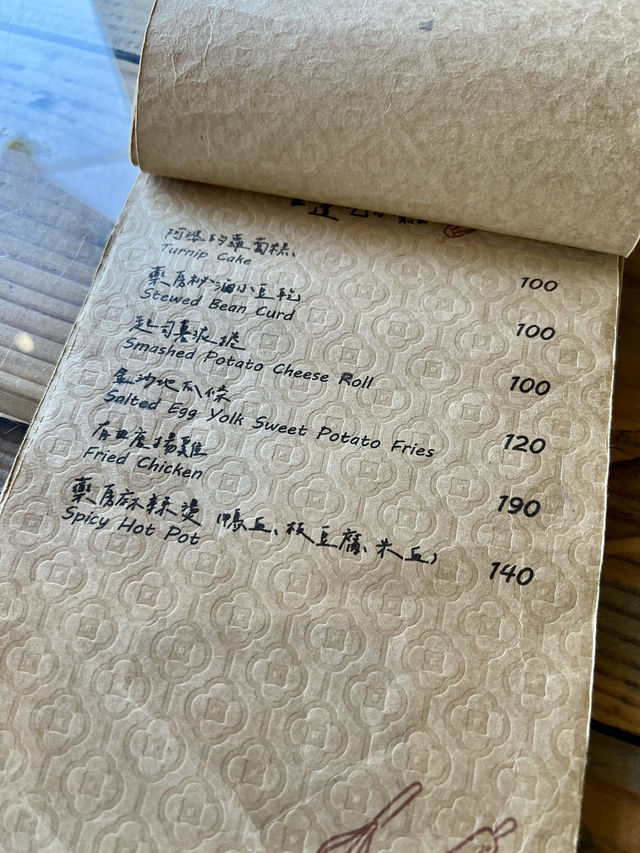 阿婆的蘿蔔糕
Turnip Cake 100
藥房秘滷小豆乾
Stewed Bean Curd 100
起司薯泥捲
Smashed Potato Cheese Roll 100
金沙地瓜條
Salted Egg Yolk Sweet Potato Fries 120
揚雞
Fried Chicken 190
藥房麻辣燙 (鴨血、板豆腐、米血)
Spicy Hot Pot 140